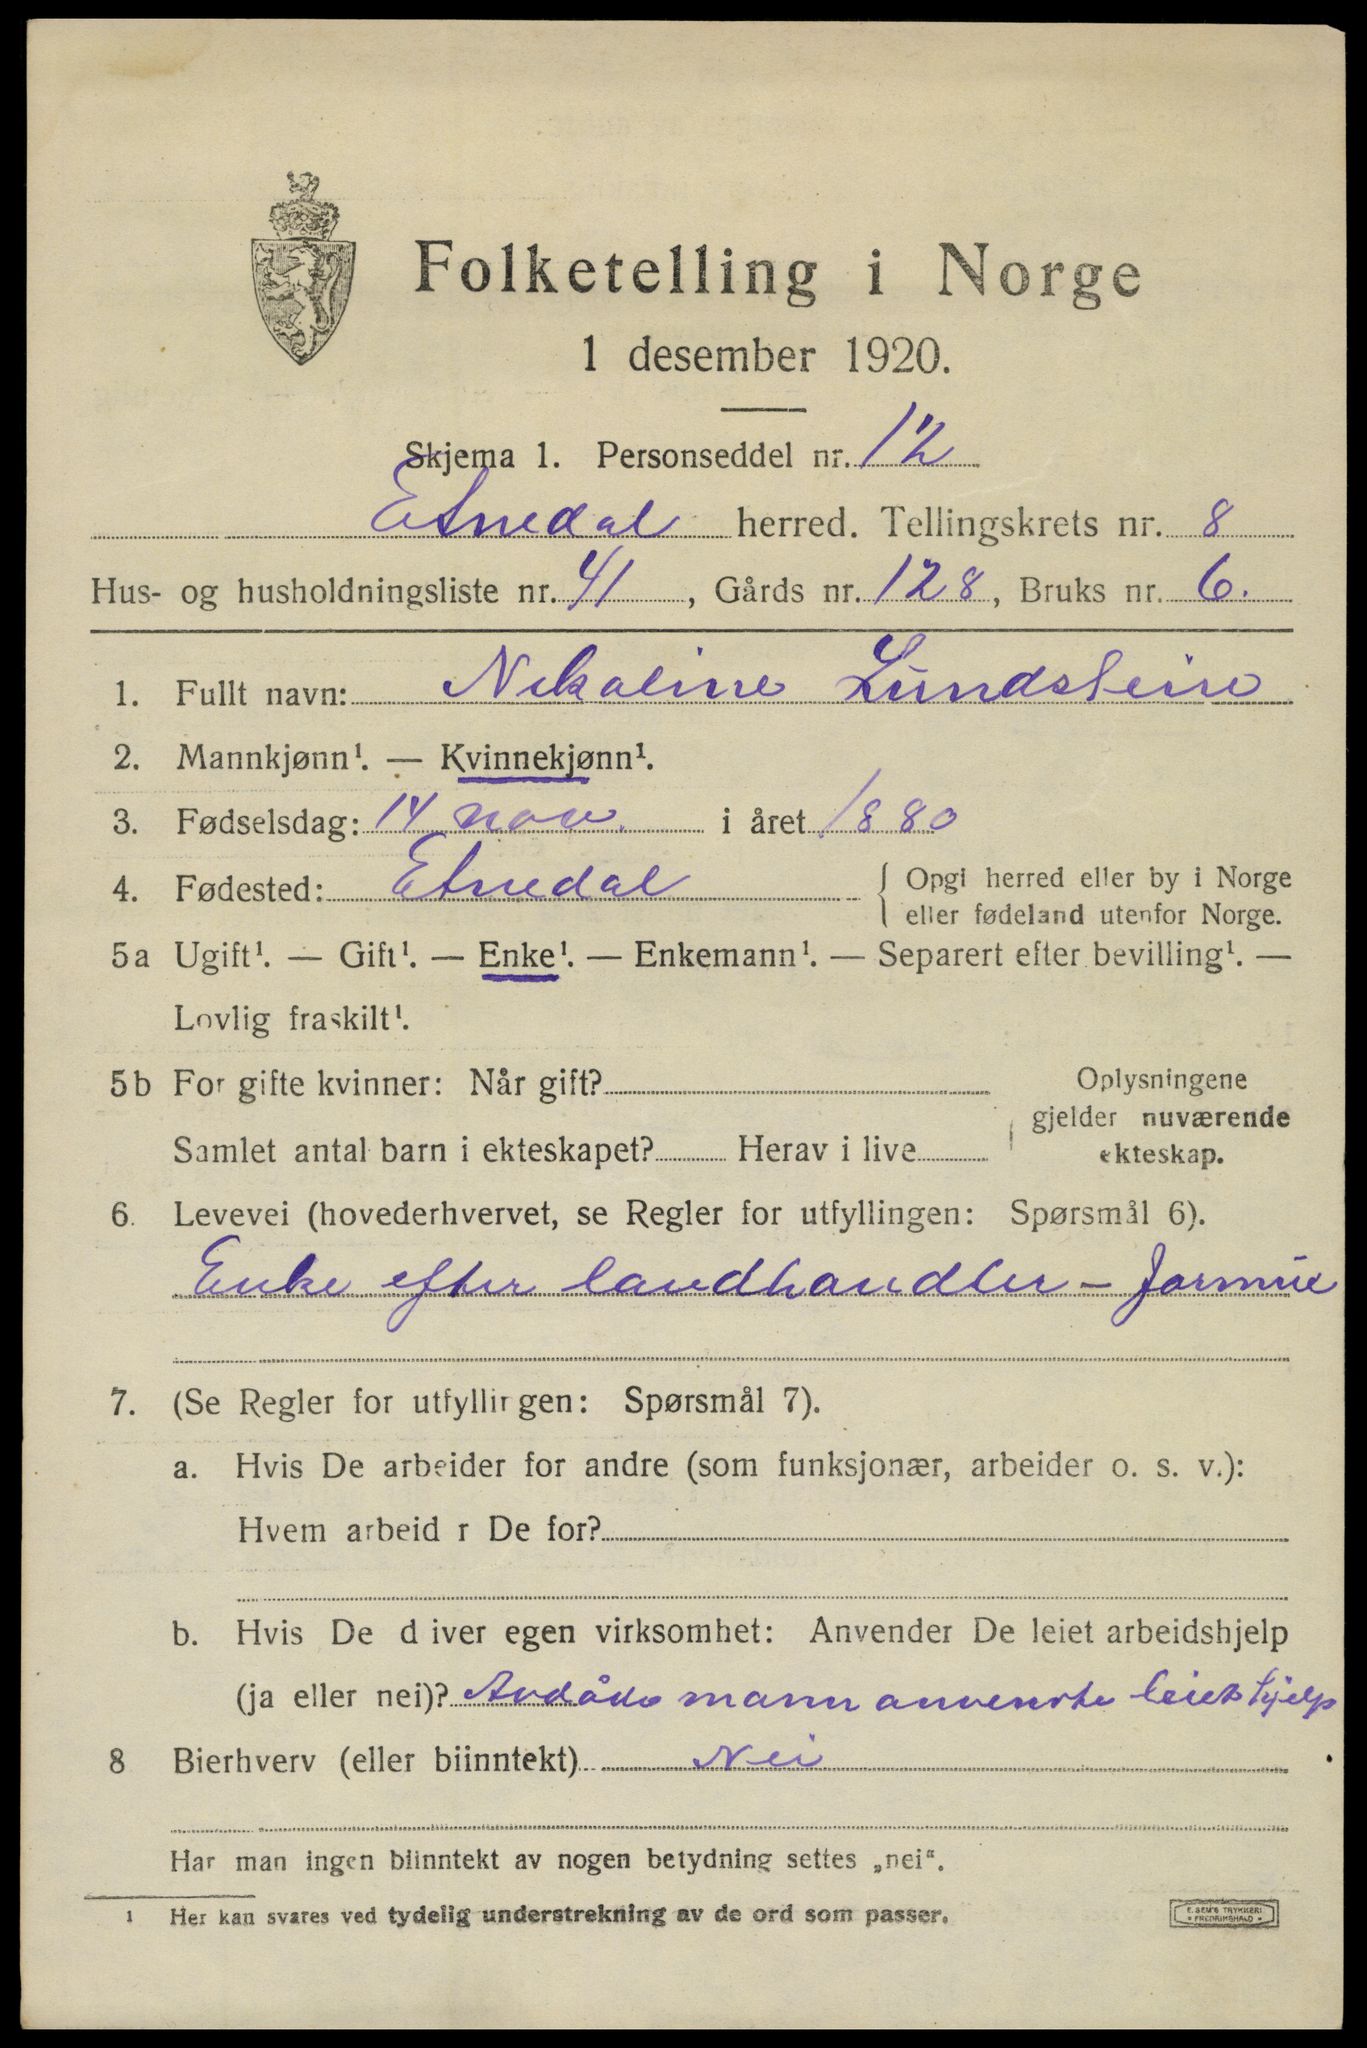 Folketelling i Norge
1 desember 1920.
Skjema 1. Personseddel nr. 12
Etnedal herred. Tellingskrets nr. 8
Hus- og husholdningsliste nr. 41, Gårds nr. 128, Bruks nr. 6.
1. Fullt navn: Nikoline Lundstein
2. Mannkjønn¹. — Kvinnekjønn¹.
3. Fødselsdag: 14 nov. i året 1880
4. Fødested: Etnedal { Opgi herred eller by i Norge
eller fødeland utenfor Norge.
5a Ugift¹. — Gift¹. — Enke¹. — Enkemann¹. — Separert efter bevilling¹. —
Lovlig fraskilt¹.
5b For gifte kvinner: Når gift? Oplysningene
gjelder nuværende
Samlet antal barn i ekteskapet? Herav i live ekteskap.
6. Levevei (hovederhvervet, se Regler for utfyllingen: Spørsmål 6).
Enke efter landhandler – formue
7. (Se Regler for utfyllingen: Spørsmål 7).
a. Hvis De arbeider for andre (som funksjonær, arbeider o. s. v.):
Hvem arbeid r De for?
b. Hvis De d iver egen virksomhet: Anvender De leiet arbeidshjelp
(ja eller nei)? Avdøde mann anvendte leiet hjelp
8 Bierhverv (eller biinntekt) Nei
Har man ingen biinntekt av nogen betydning settes „nei“.
¹ Her kan svares ved tydelig understrekning av de ord som passer.
E. SEM'S TRYKKERI
FREDRIKSHALD